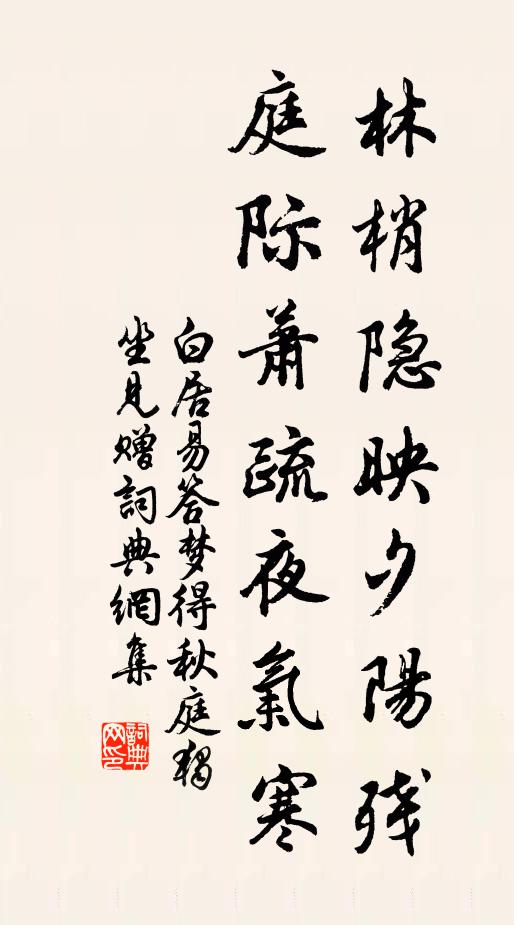 林梢隐映夕陽残
庭际蕭疏夜氣寒
白居易答梦得秋庭獨
坐見赠詞典網集
詞典
网印